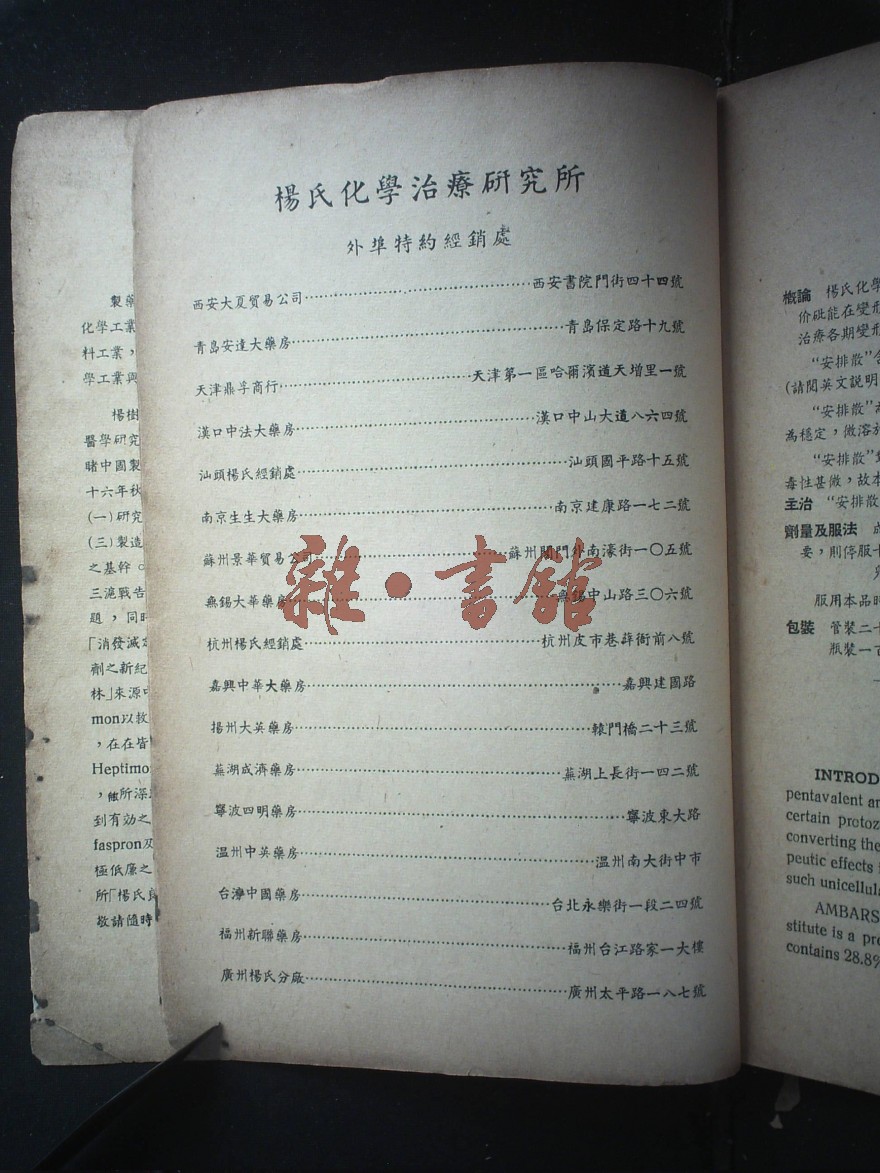 製藥
化學工業
料工業，
學工業與
楊樹
醫學研究
睹中國製
十六年秋
(一)研究
(三)製造
之基幹。
三滬戰告
題，同時
「消發滅定
劑之新紀
林」來源中
mon以救
，在在皆
Heptimo
，所深
到有効之
faspron及
極低廉之
所「楊氏良
敬請隨時
楊氏化學治療研究所
外埠特約經銷處
西安大夏貿易公司……西安書院門街四十四號
青島安達大藥房……青島保定路十九號
天津鼎孚商行……天津第一區哈爾濱道天增里一號
漢口中法大藥房……漢口中山大道八六四號
汕頭楊氏經銷處……汕頭國平路十五號
南京生生大藥房……南京建康路一七二號
蘇州景華貿易公司……蘇州閶門外南濠街一〇五號
無錫大華藥房……無錫中山路三〇六號
杭州楊氏經銷處……杭州皮市巷薛衙前八號
嘉興中華大藥房……嘉興建國路
揚州大英藥房……轅門橋二十三號
蕪湖成濟藥房……蕪湖上長街一四二號
寧波四明藥房……寧波東大路
温州中英藥房……温州南大街中市
台灣中國藥房……台北永樂街一段二四號
福州新聯藥房……福州台江路家一大樓
廣州楊氏分廠……廣州太平路一八七號
雜·書館
概論 楊氏化學
价砒能在變形
治療各期變形
"安排散"含
(請閱英文說明
"安排散"為
為穩定，微溶於
"安排散"
毒性甚微，故本
主治 "安排散
劑量及服法 成
要，則停服十
服用本品時
包裝 管裝二十
瓶裝一百
INTROD
pentavalent ar
certain protoz
converting the
peutic effects
such unicellula
AMBARS
stitute is a pro
contains 28.8%